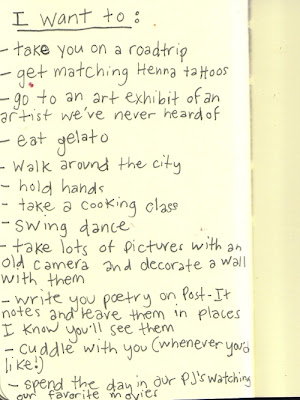 I want to:
- take you on a roadtrip
- get matching Henna tattoos
- go to an art exhibit of an
artist we've never heard of
- eat gelato
- walk around the city
- hold hands
- take a cooking class
- swing dance
- take lots of pictures with an
old camera and decorate a wall
with them
- write you poetry on Post-It
notes and leave them in places
I know you'll see them
- cuddle with you (whenever you'd
like!)
- spend the day in our PJ's watching
our favorite movies